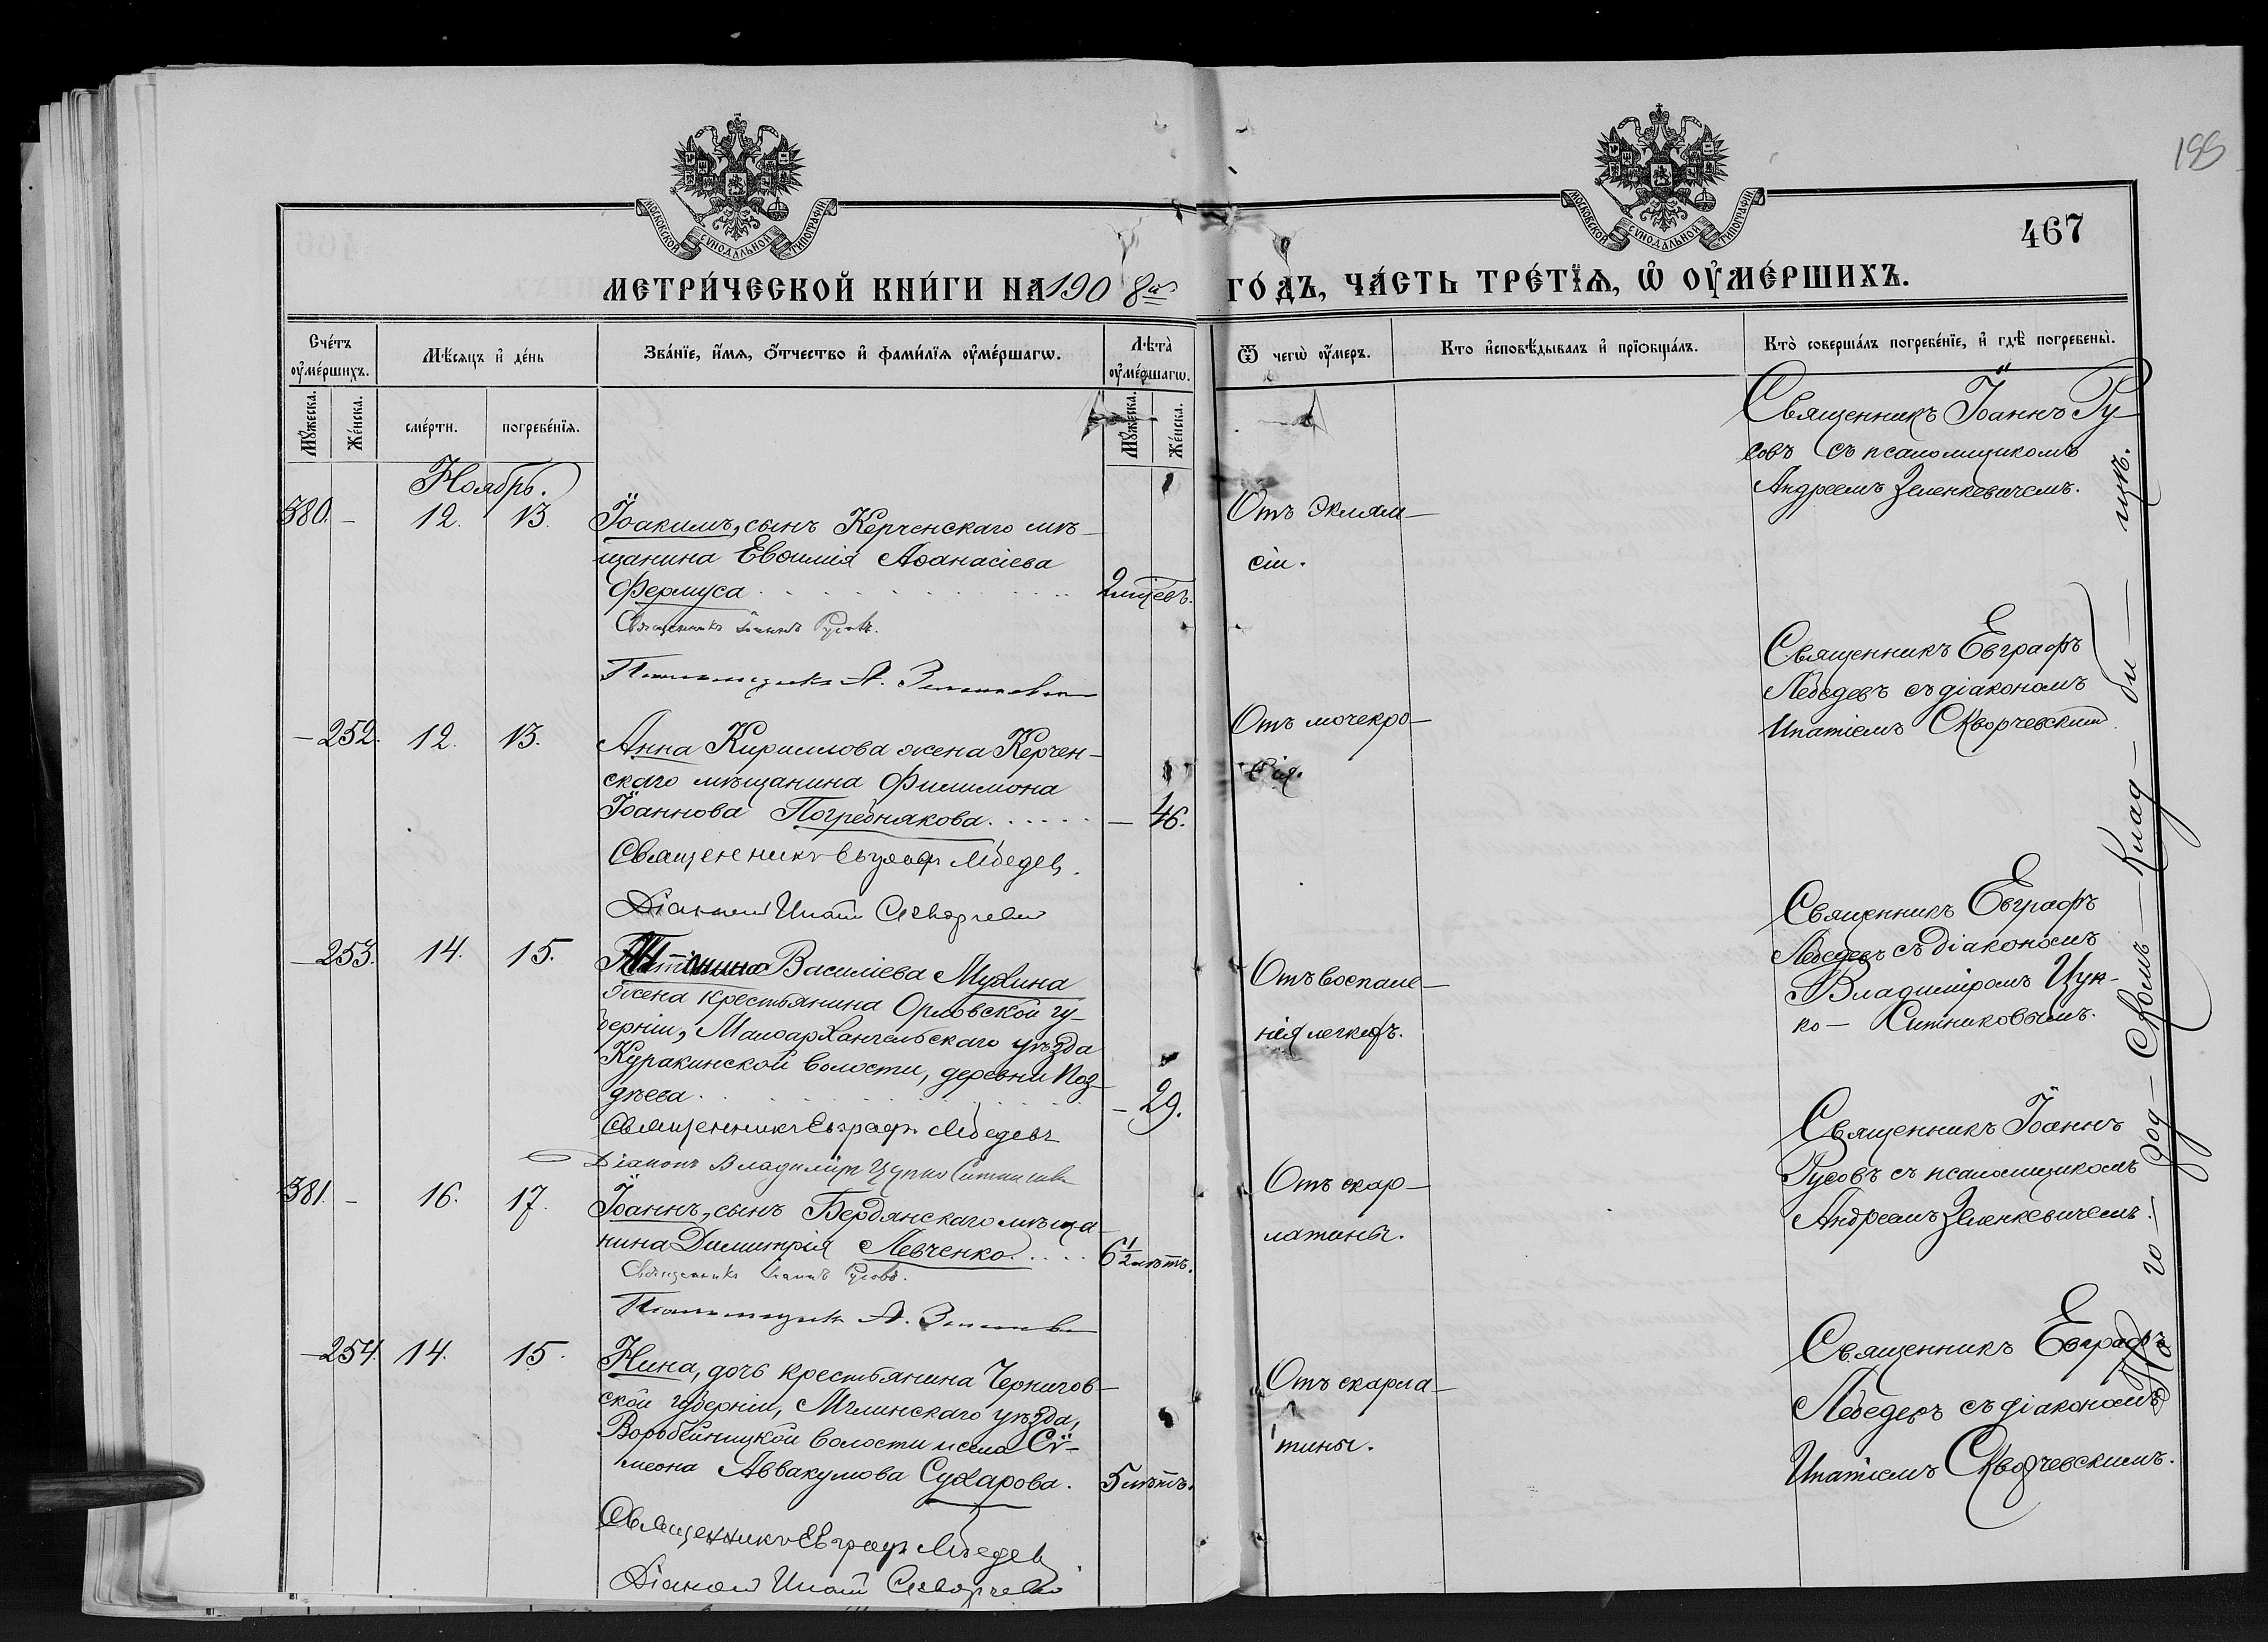 188
467
МОСКОВСКОЙ СѴНОДАЛЬНОЙ ТИПОГРАФІИ
МОСКОВСКОЙ СѴНОДАЛЬНОЙ ТИПОГРАФІИ
МЕТРИ́ЧЕСКОЙ КНИ́ГИ НА 1908й ГО́ДЪ, ЧА́СТЬ ТРЕ́ТІѦ, Ѡ ОУ҆МЕ́РШИХЪ.
Сче́тъ оу҆ме́ршихъ.
Мѣ́сяцъ и҆ де́нь
Зва́нїе, и҆́мя, ѻ҆́тчество и҆ фами́лїя оу҆ме́ршагѡ.
Лѣ́та оу҆ме́ршагѡ.
Ѿ чегѡ̀ оу҆́меръ.
Кто и҆сповѣ́дывалъ и҆ прїѡбща́лъ.
Кто̀ соверша́лъ погребе́нїе, и҆ гдѣ̀ погребены̀.
Му́жеска.
Же́нска.
сме́рти.
погребе́нїя.
Му́жеска.
Же́нска.
Ноябрь.
380. – 12. 13.
Іоакимъ, сынъ Керченскаго мѣ-
щанина Евѳимія Аѳанасіева
Фермуса
2 мѣсц.
Священникъ Іоаннъ Русовъ.
Псаломщикъ А. Зеленкевич
Отъ эклям-
сіи.
Священникъ Іоаннъ Ру-
совъ съ псаломщикомъ
Андреемъ Зеленкевичемъ.
– 252. 12. 13.
Анна Кириллова жена Керчен-
скаго мѣщанина Филимона
Іоаннова Погребнякова.
– 46.
Священникъ Евграфъ Лебедев.
Діакон Ипатій Скворчевск
Отъ мочекро-
вія.
Священникъ Евграфъ
Лебедевъ съ діакономъ
Ипатіемъ Скворчевским
– 253. 14. 15.
Василіева Мухина
жена крестьянина Орловской гу-
берніи, Малоархангельскаго уѣзда
Куракинской волости, деревни Поз-
дѣева.
– 29.
Священникъ Евграфъ Лебедевъ
Діаконъ Владиміръ Цупко Ситников
Отъ воспале-
нія легкихъ.
Священникъ Евграфъ
Лебедевъ съ діакономъ
Владиміромъ Цуп-
ко – Ситниковымъ.
381. – 16. 17.
Іоаннъ, сынъ Бердянскаго мѣща-
нина Димитрія Левченко.
6½ лѣтъ.
Священникъ Іоаннъ Русовъ.
Псаломщикъ А. Зеленкев
Отъ скар-
латины.
Священникъ Іоаннъ
Русовъ съ псаломщикомъ
Андреемъ Зеленкевичемъ.
– 254. 14. 15.
Нина, дочь крестьянина Чернигов-
ской губерніи, Мглинскаго уѣзда,
Воробейницкой волости и села Сѵ-
меона Аввакумова Сухарова.
5 лѣтъ.
Священникъ Евграфъ Лебедев
Діакон Ипатій Скворчевск
Отъ скарла-
тины.
Священникъ Евграфъ
Лебедевъ съ діакономъ
Ипатіемъ Скворчевскимъ.
На го – род – скомъ – клад – би – щѣ.